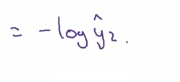 = - log ŷ₂.